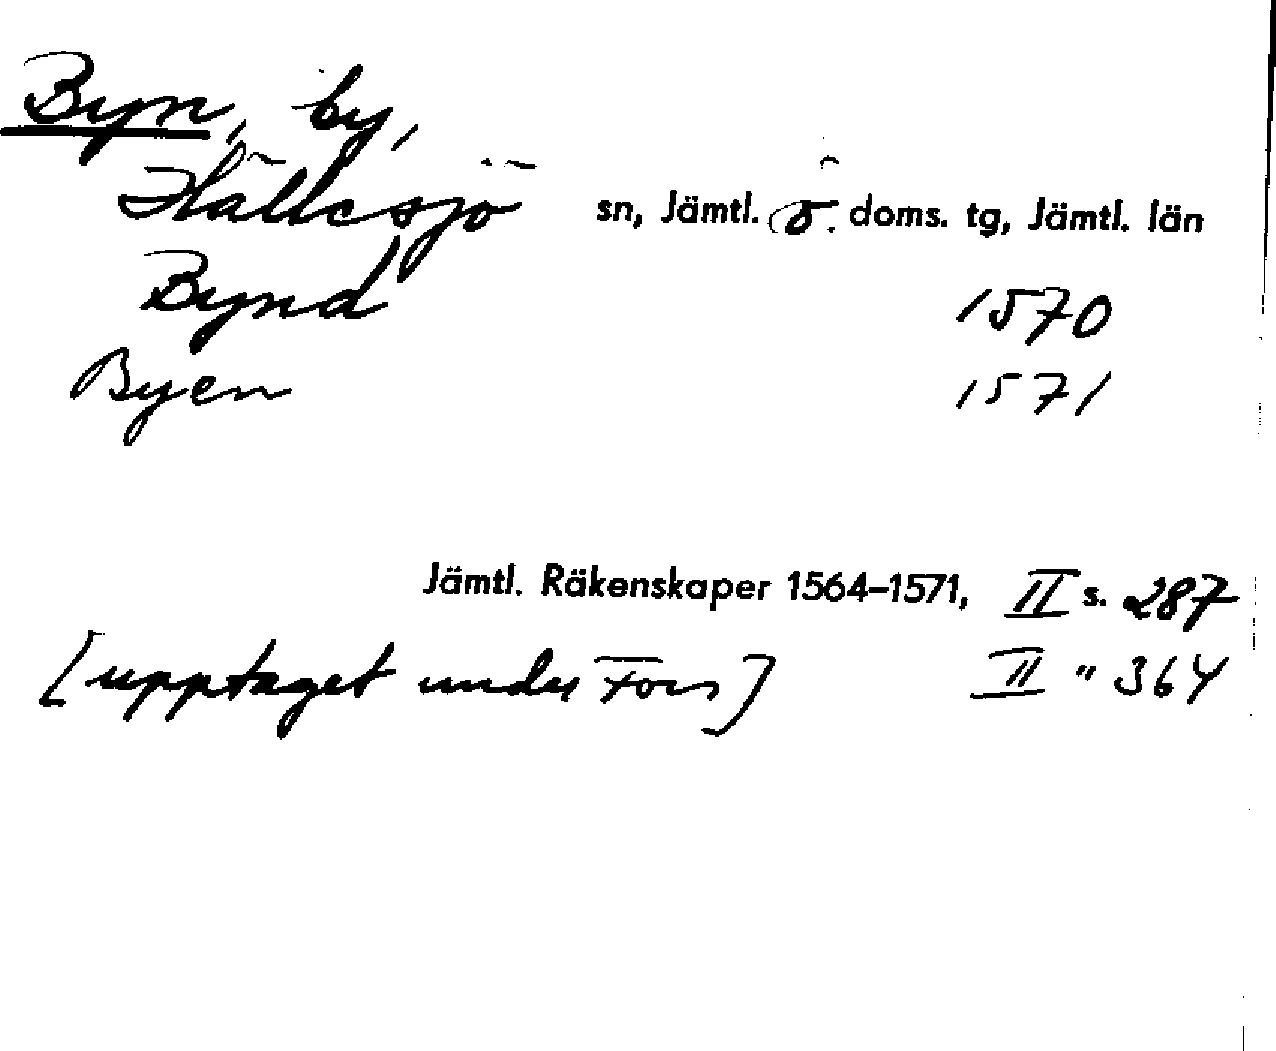 Byn, by,
Hällesjö sn, Jämtl. ö. doms. tg, Jämtl. län
Bynd 1570
Byen 1571
Jämtl. Räkenskaper 1564–1571, II s. 287
[upptaget under Fors] II " 364